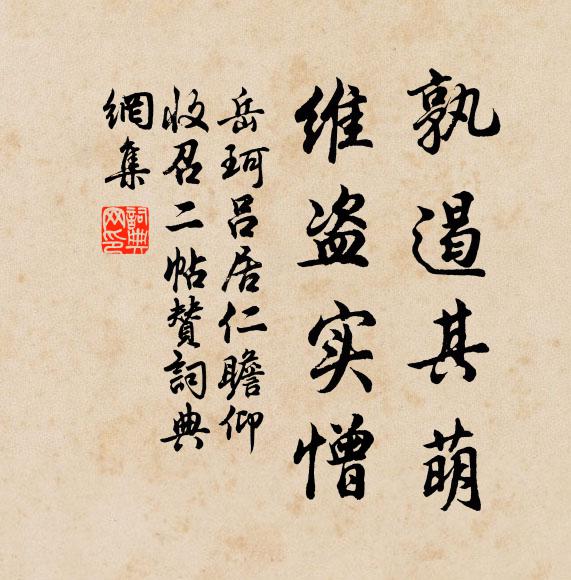 孰遏其萌
维盗实憎
岳珂吕居仁瞻仰
收召二帖赞詞典
網集
詞典
网印